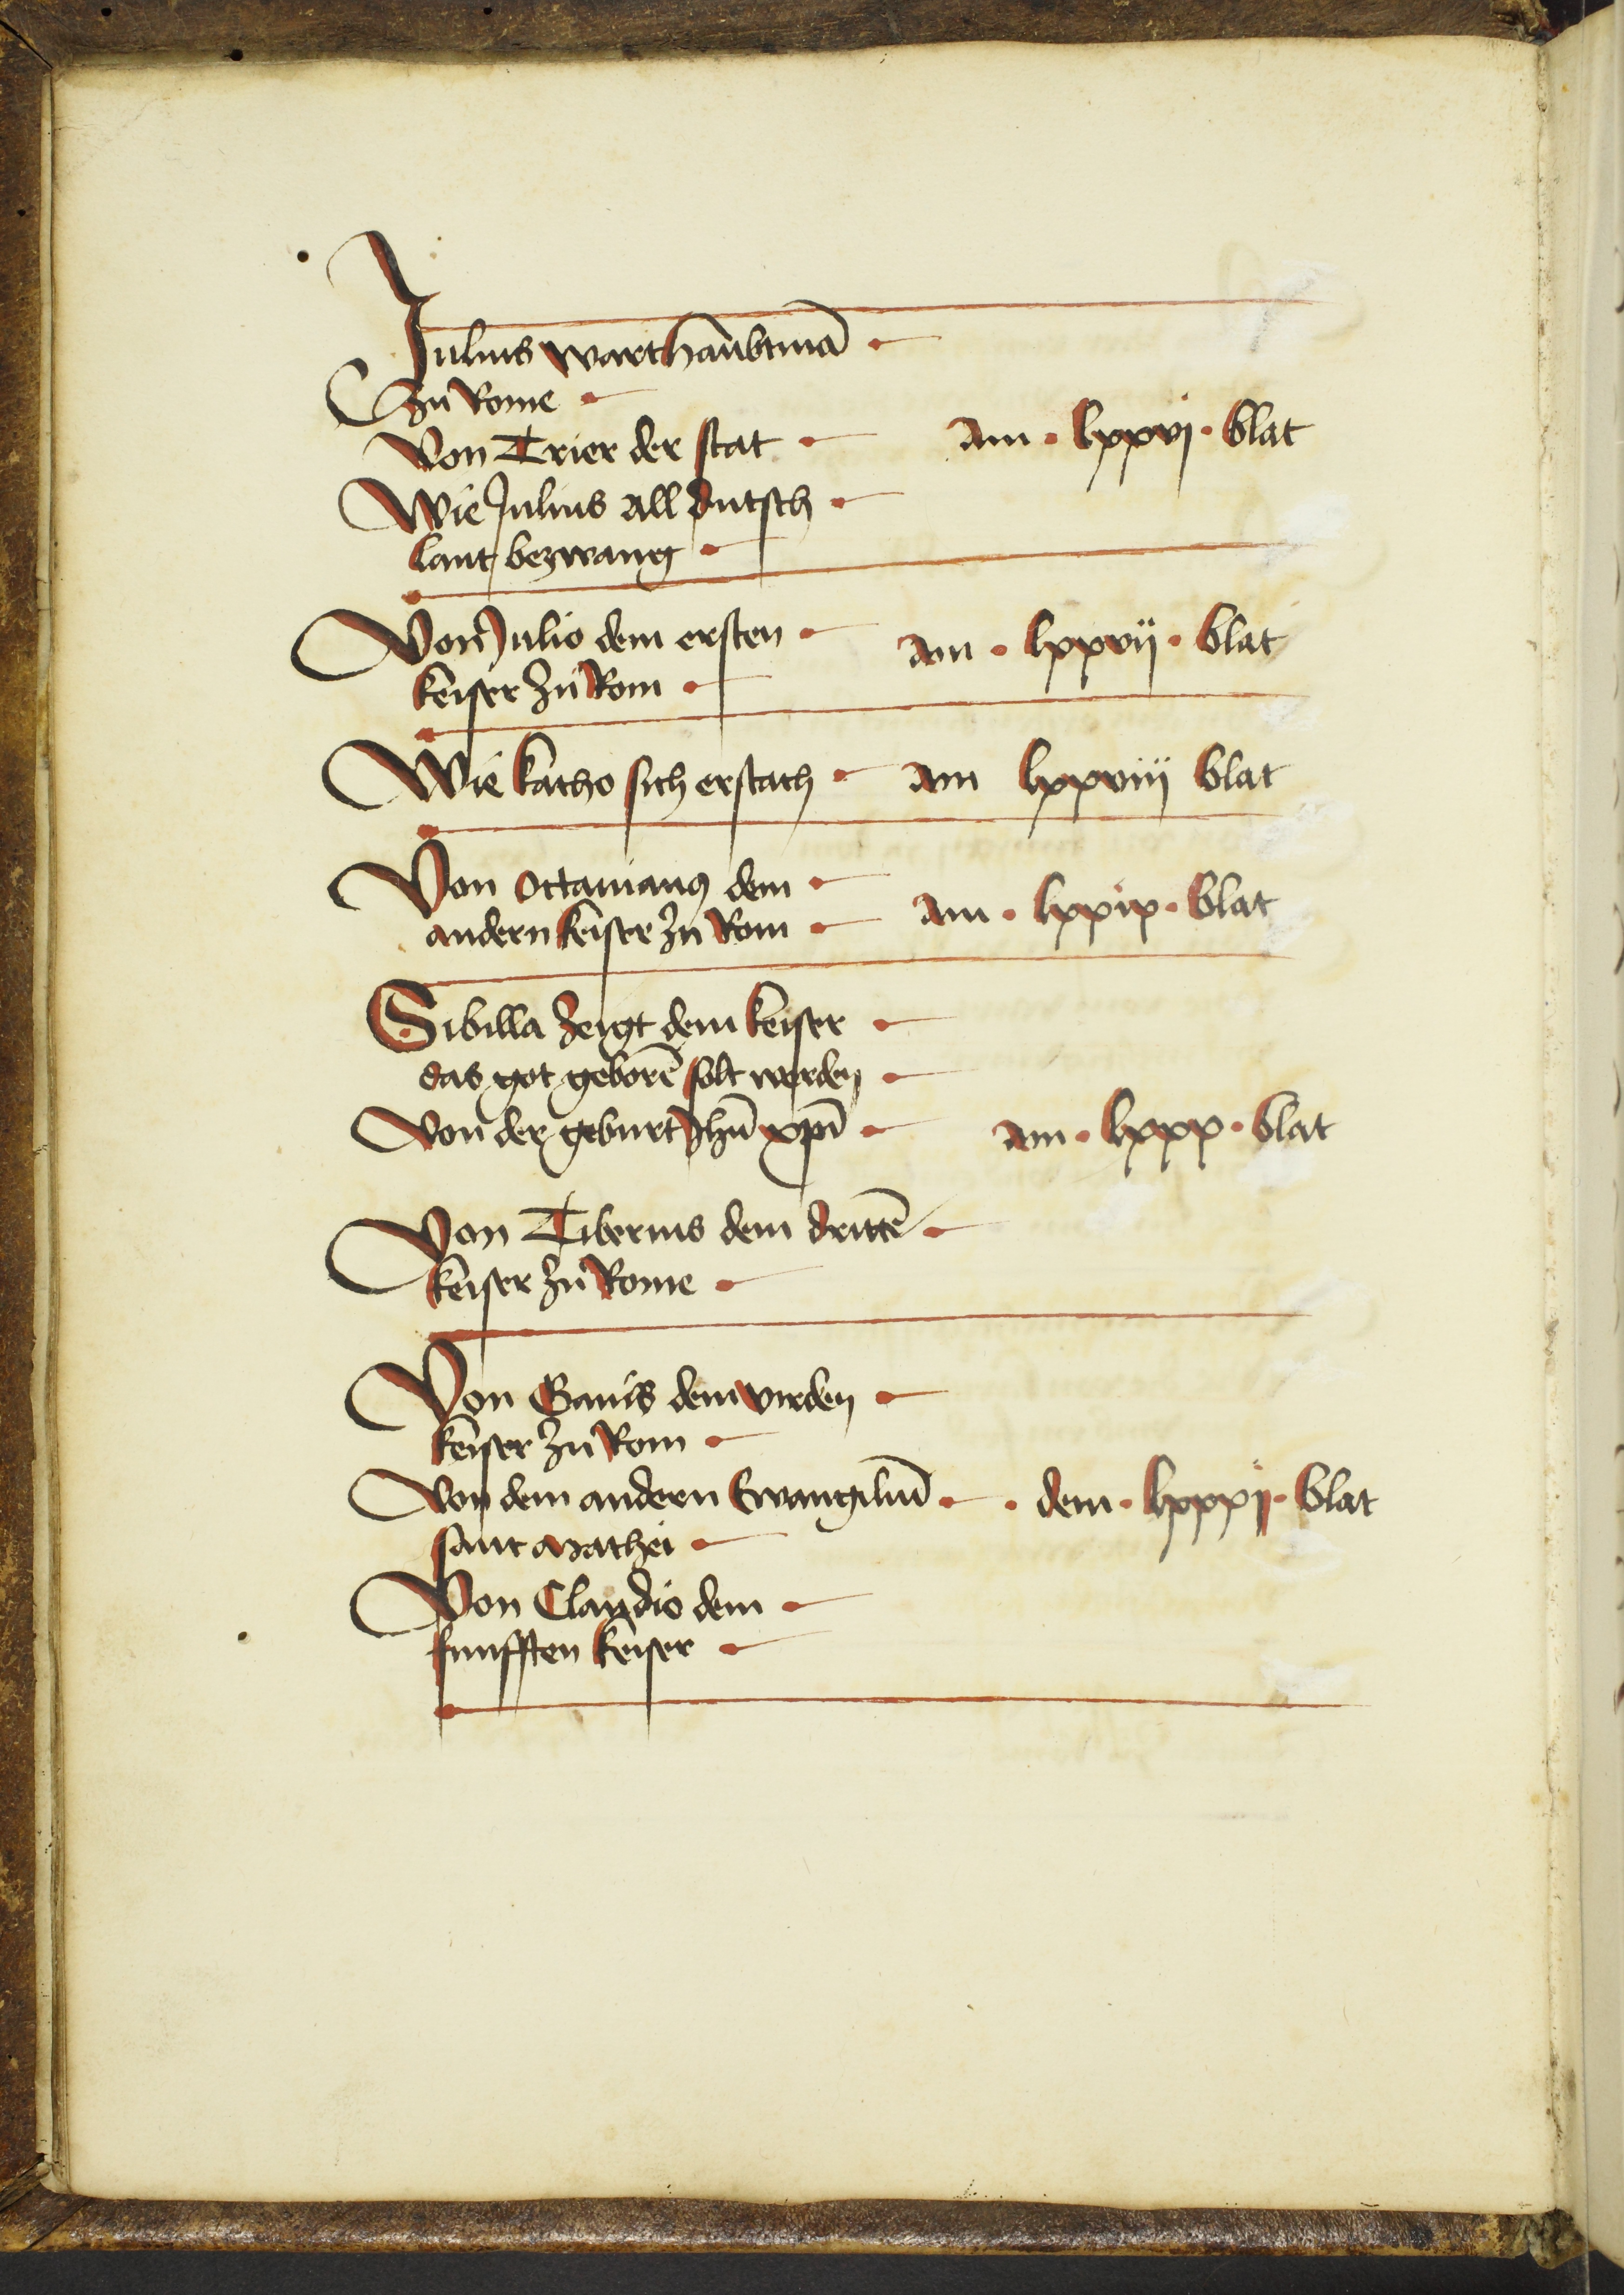 Julius wart haubtmā
zu Rome
Von Trier der stat am · lxxvj · blat
Wie Julius all dutsch
lant bezwang
Von Julio dem ersten am · lxxvij · blat
keiser zu Rom
Wie katho sich erstach am lxxviij blat
Von Octauianꝰ dem
andern keiser zu Rom am · lxxix · blat
Sibilla zeigt dem keiser
das got geborē solt werden
Von der geburt Jhū xp̄i am · lxxx · blat
Von Tiberius dem drittē
keiser zu Rome
Von Gaius dem virden
keiser zu Rom
Von dem andern Ewangiliū · dem · lxxxj · blat
sant mathei
Von Claudio dem
funfften keiser